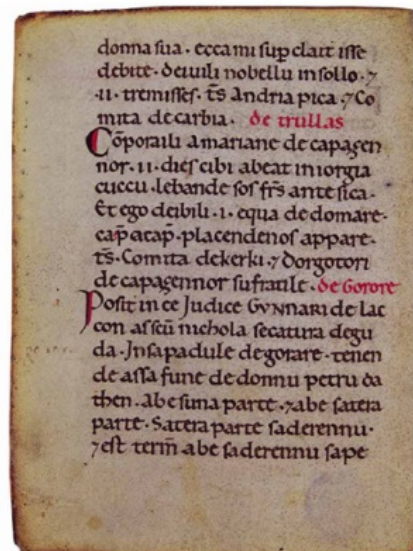 donna sua · ecca mi sup clait isse
debite · deiuili nobellu in sollo · ⁊
· ii · tremisses · t̄s Andria pica · ⁊ Co
mita de carbia · de trullas
Cōporaili a mariane de capagen
nor · ii · dies cibi abeat in iorgia
cuccu · lebande sos fr̄s ante sica ·
Et ego deibili · i · equa de domare ·
cap̄ a cap̄ · placendenos appare ·
t̄s · Comita de kerki · ⁊ dorgotori
de capagennor su fratile · de Gorore
Posit in ce Judice GVNNARI de lac
con a sc̄u nichola secatura degu
da · In sa padule de gorare · tenen
de assa fune de donnu petru da
then · Abe s una parte · ⁊ abe s atera
parte · S atera parte sa derennu ·
⁊ est term̄ abe sa derennu sa pe